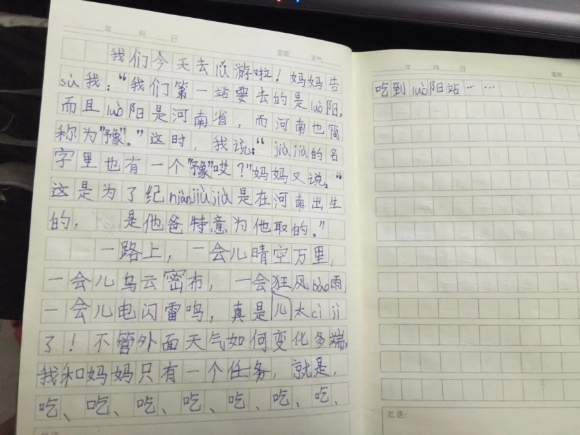 年 月 日 星期 天气
我们今天去旅游啦！妈妈告
sù我："我们第一站要去的是luò阳，
而且luò阳是河南省，而河南也简
称为"豫"。"这时，我说："jiùjiù的名
字里也有一个"豫"哎？"妈妈又说："
这是为了纪niànjiùjiù是在河南出生
的，是他爸特意为他取的。"
一路上，一会儿晴空万里，
一会儿乌云密布，一会儿狂风bào雨
一会儿电闪雷鸣，真是太cì jī
了！不管外面天气如何变化多端，
我和妈妈只有一个任务，就是，
吃、吃、吃、吃、吃、吃、吃、
年 月 日
吃到luò阳站……
批语：